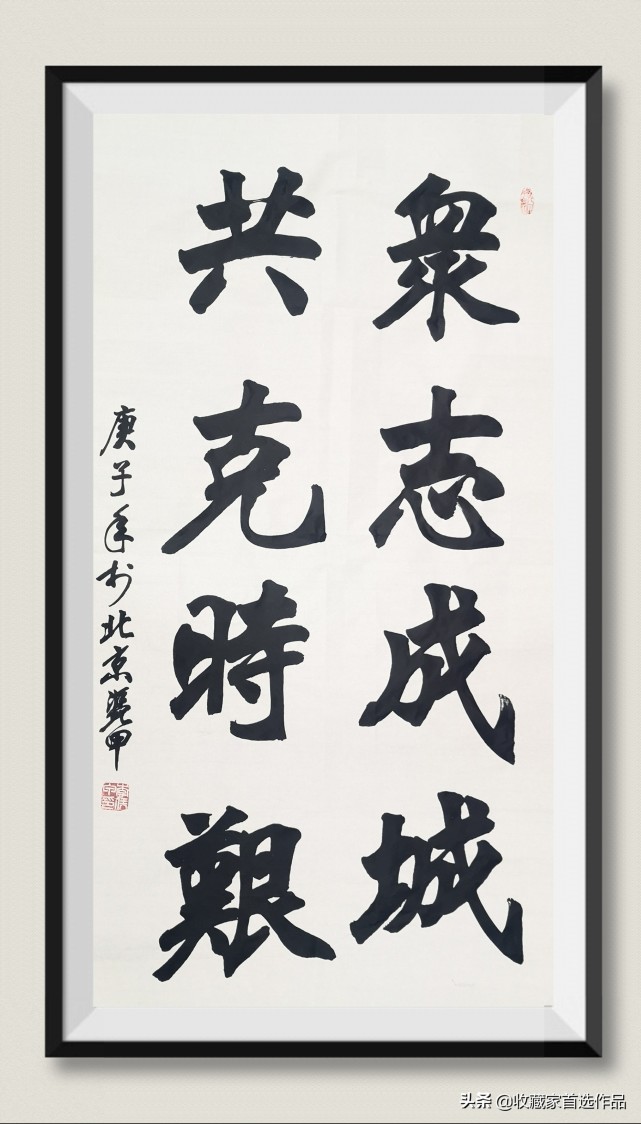 衆志成城
共克時艱
庚子年於北京
头条 @收藏家首选作品